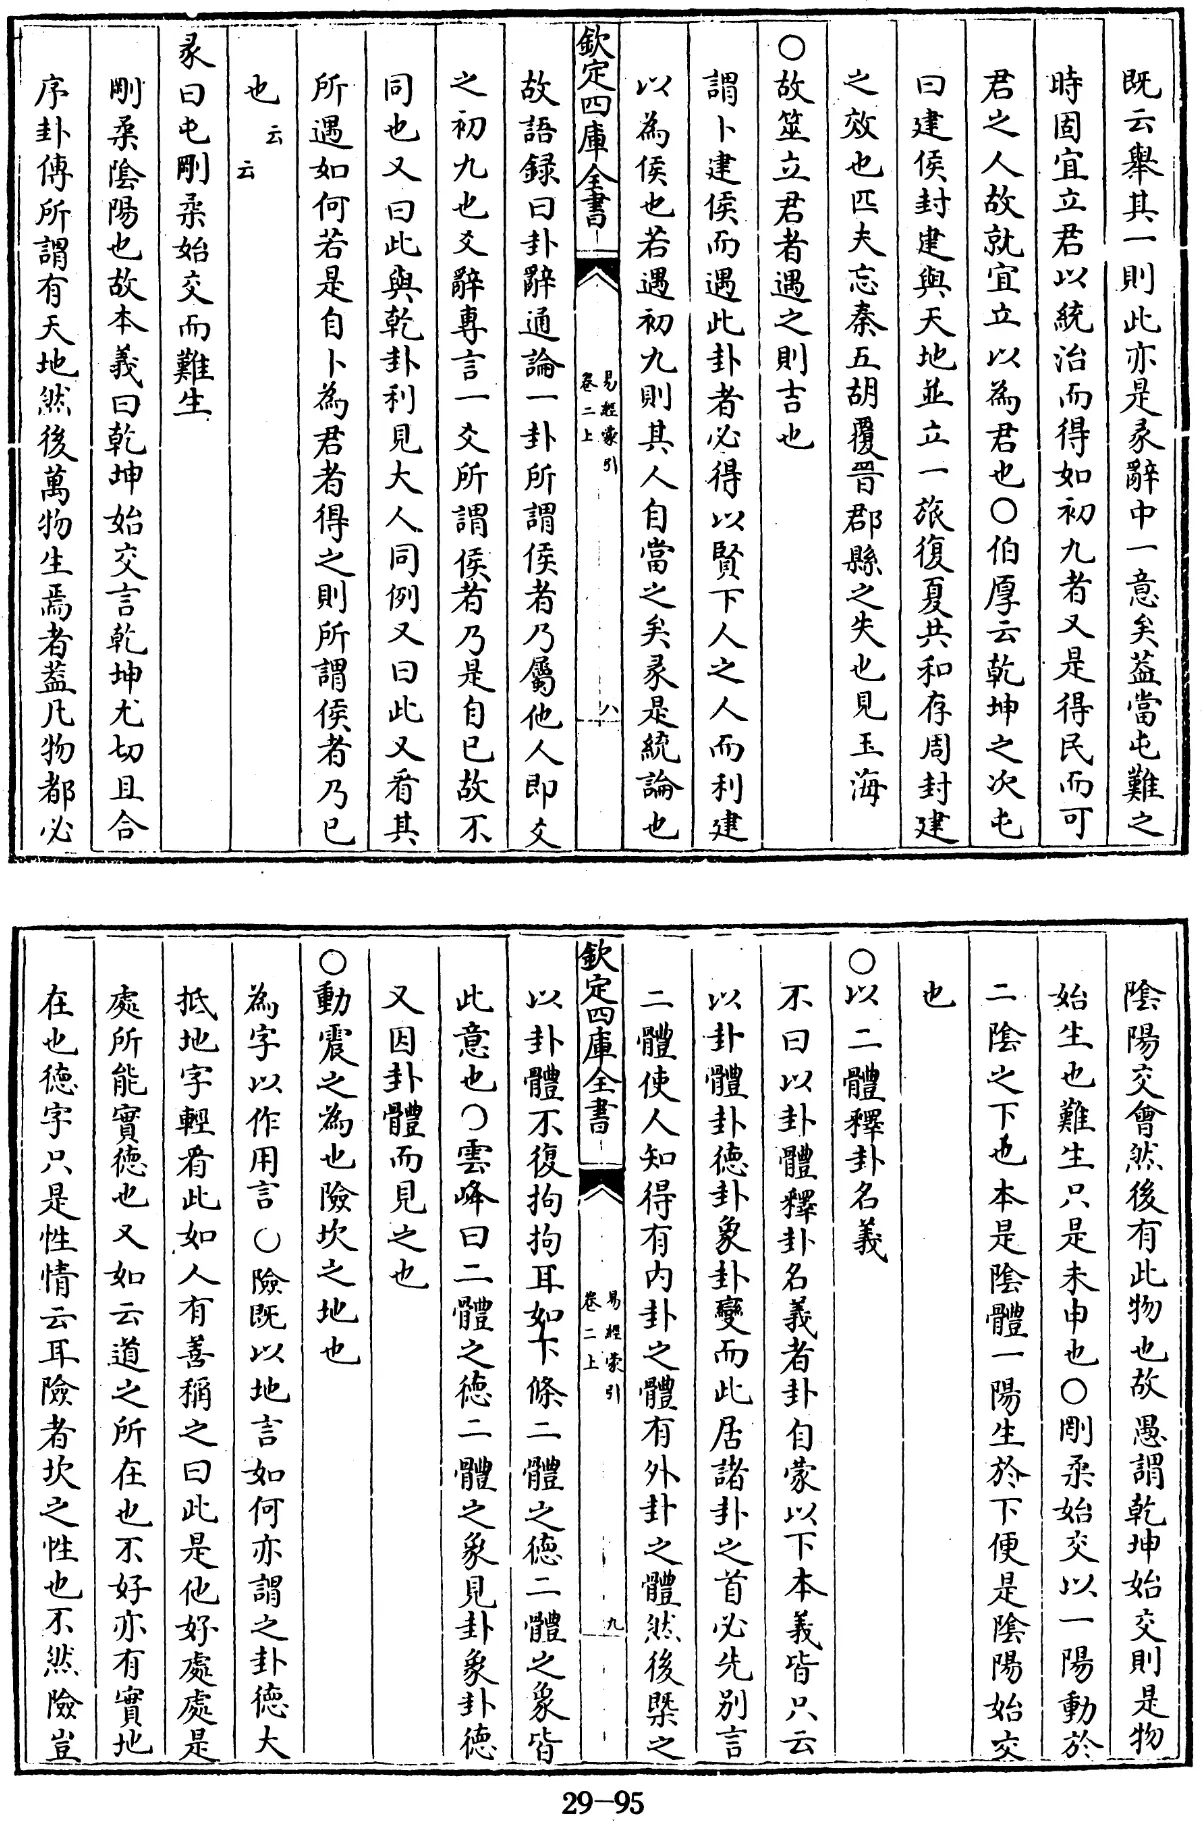 既云舉其一則此亦是彖辭中一意矣葢當屯難之
時固宜立君以統治而得如初九者又是得民而可
君之人故就宜立以為君也○伯厚云乾坤之次屯
曰建侯封建與天地並立一旅復夏共和存周封建
之效也匹夫忘秦五胡覆晉郡縣之失也見玉海
○故筮立君者遇之則吉也
謂卜建侯而遇此卦者必得以賢下人之人而利建
以為侯也若遇初九則其人自當之矣彖是統論也
欽定四庫全書
易經蒙引
卷二上
八
故語録曰卦辭通論一卦所謂侯者乃屬他人即爻
之初九也爻辭專言一爻所謂侯者乃是自已故不
同也又曰此與乾卦利見大人同例又曰此又看其
所遇如何若是自卜為君者得之則所謂侯者乃已
也云云
彖曰屯剛柔始交而難生
剛柔陰陽也故本義曰乾坤始交言乾坤尤切且合
序卦傳所謂有天地然後萬物生焉者葢凡物都必
陰陽交會然後有此物也故愚謂乾坤始交則是物
始生也難生只是未申也○剛柔始交以一陽動於
二陰之下也本是陰體一陽生於下便是陰陽始交
也
○以二體釋卦名義
不曰以卦體釋卦名義者卦自蒙以下本義皆只云
以卦體卦徳卦象卦變而此居諸卦之首必先别言
二體使人知得有内卦之體有外卦之體然後槩之
欽定四庫全書
易經蒙引
卷二上
九
以卦體不復拘拘耳如下條二體之徳二體之象皆
此意也○雲峰曰二體之徳二體之象見卦象卦徳
又因卦體而見之也
○動震之為也險坎之地也
為字以作用言○險既以地言如何亦謂之卦徳大
抵地字輕看此如人有善稱之曰此是他好處處是
處所能實徳也又如云道之所在也不好亦有實地
在也徳字只是性情云耳險者坎之性也不然險豈
29-95